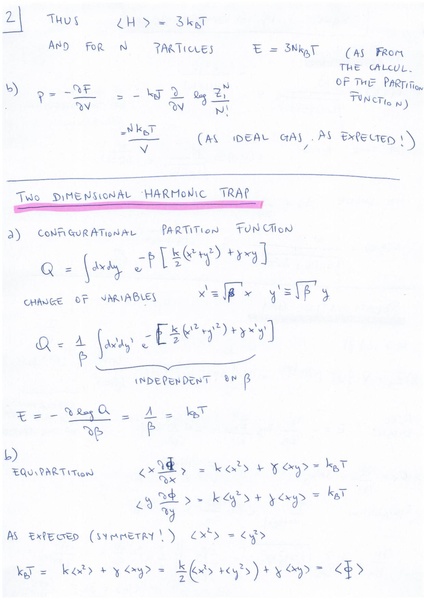 2
THUS ⟨H⟩ = 3k_BT
AND FOR N PARTICLES E = 3Nk_BT (AS FROM THE CALCUL. OF THE PARTITION FUNCTION)
b) p = -∂F/∂V = - k_BT ∂/∂V log Z_1^N/N!
= Nk_BT/V (AS IDEAL GAS, AS EXPECTED!)
TWO DIMENSIONAL HARMONIC TRAP
a) CONFIGURATIONAL PARTITION FUNCTION
Q = ∫dxdy e^{-β[k/2(x²+y²) + γxy]}
CHANGE OF VARIABLES x' ≡ √β x y' ≡ √β y
Q = 1/β ∫dx'dy' e^{-[k/2(x'²+y'²) + γx'y']}
INDEPENDENT ON β
E = - ∂log Q/∂β = 1/β = k_BT
b)
EQUIPARTITION ⟨x ∂Φ/∂x⟩ = k⟨x²⟩ + γ⟨xy⟩ = k_BT
⟨y ∂Φ/∂y⟩ = k⟨y²⟩ + γ⟨xy⟩ = k_BT
AS EXPECTED (SYMMETRY!) ⟨x²⟩ = ⟨y²⟩
k_BT = k⟨x²⟩ + γ⟨xy⟩ = k/2(⟨x²⟩ + ⟨y²⟩) + γ⟨xy⟩ = ⟨Φ⟩